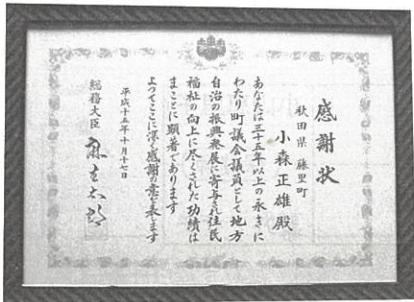 感謝状
秋田県 藤里町
小森正雄殿
あなたは三十五年以上の永きに
わたり町議会議員として地方
自治の振興発展に寄与され住民
福祉の向上に尽くされた功績は
まことに顕著であります
よってここに深く感謝の意を表します
平成十五年十月十七日
総務大臣 麻生太郎